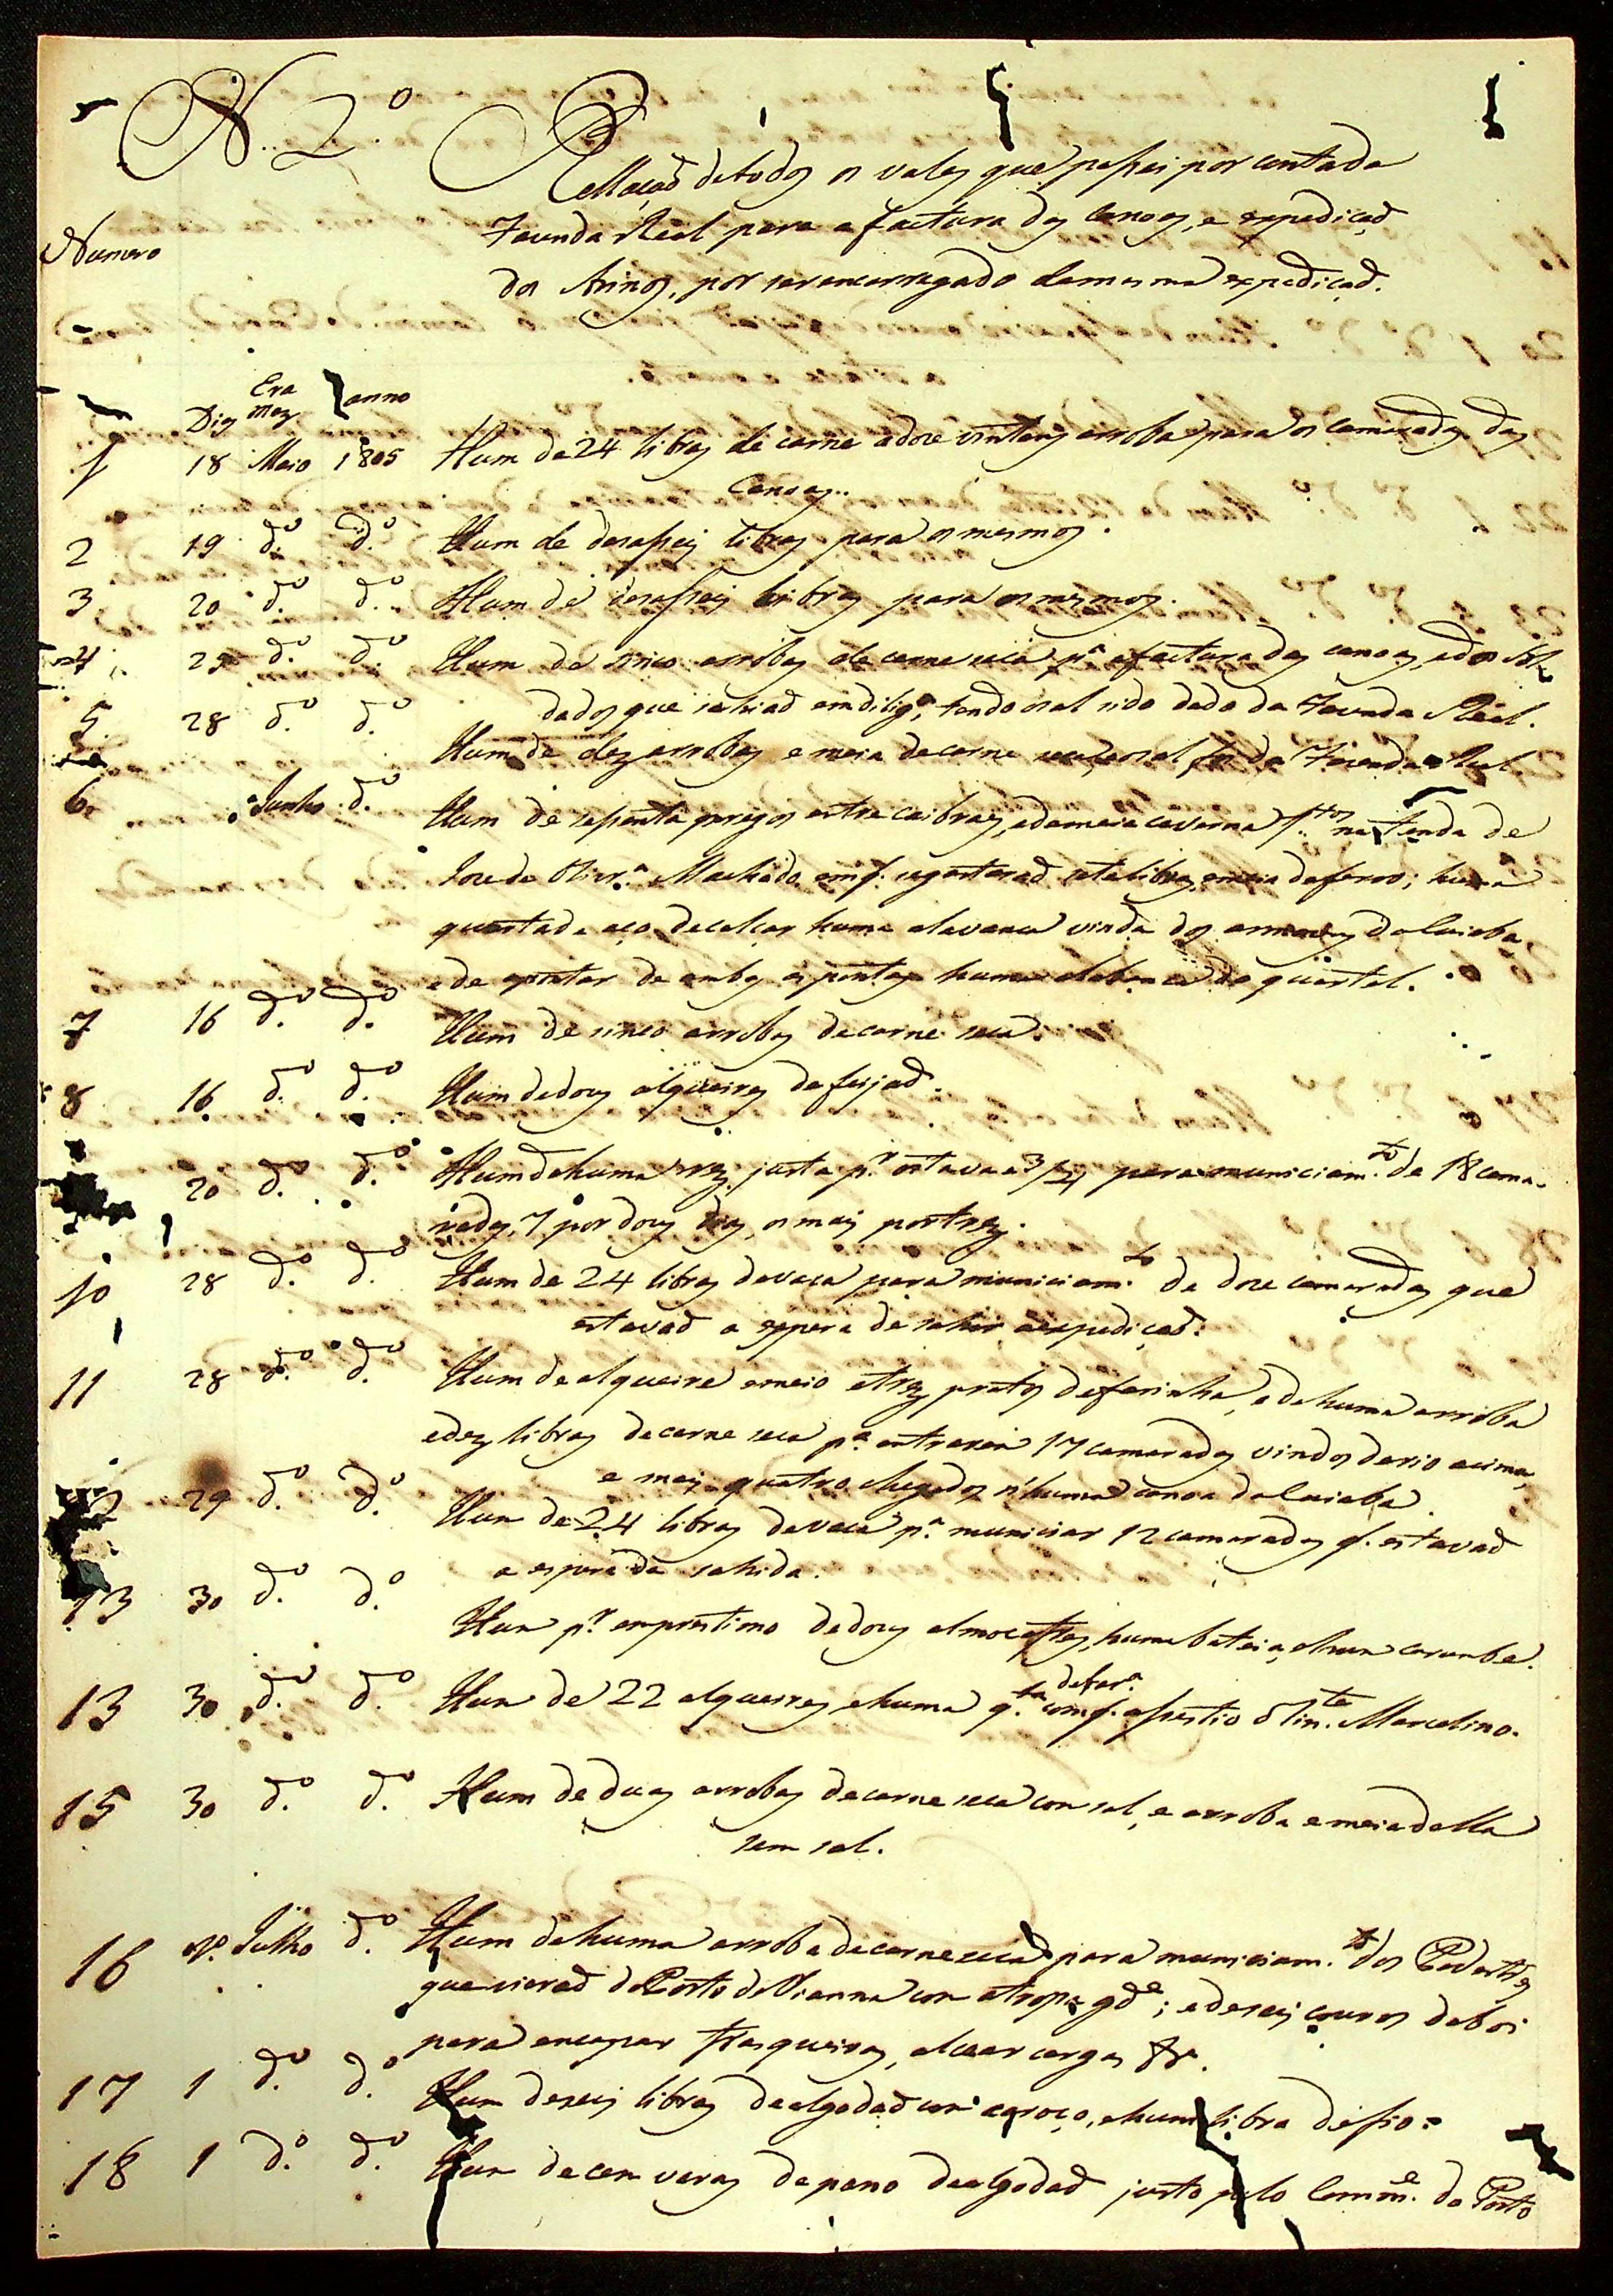 N. 2.º
Rellaçaõ de todos os vales que passei por conta da
Fazenda Real para a factura das canoas, e expediçaõ
Numero
dos Arinos, por ser encarregado da mesma expediçaõ.
Era
Dias Mez anno
1 18 Maio 1805 Hum de 24 libras de carne a doze vintens arroba para os camaradas das
Canoas..
2 19 d.º d.º Hum de desaseis libras para os mesmos.
3 20 d.º d.º Hum de desaseis libras para os mesmos.
4 d.º d.º Hum de sinco arrobas de carne seca p.ª a factura das canoas, e dos Sol
dados que sahiaõ em dilig.ª, tendo o sal sido dado da Fazenda Real.
5 28 d.º d.º
Hum de dez arrobas e meia de carne seca, e o sal foi da Fazenda Real
6 Junho d.º Hum de sesenta pregos entre caibraes, e de meia caverna f.tos na Tenda de
Joze de Olivr.ª Machado em q. se gastaraõ sete libras e meia de ferro; huma
quarta de aço de calçar huma alavanca vinda dos armazens do Cuiaba,
e de apontar de ambas as pontas huma alabanca do quartel.
7 16 d.º d.º Hum de sinco arrobas de carne seca.
8 16 d.º d.º Hum de dous alqueires de feijaõ.
20 d.º d.º Hum de huma rez justa p.r oitavas 3/24 para municiam.to de 18 cama-
radas, 7 por dous dias, os mais por tres.
10 28 d.º d.º Hum de 24 libras de vaca para municiam.to de doze camaradas que
estavaõ a espera de sahir a expediçaõ.
11 28 d.º d.º Hum de alqueire e meio e tres pratos de farinha, e de huma arroba
e dez libras de carne seca p.ª entrarem 17 camaradas vindos do rio acima,
e mais quatro chegados n'huma canoa do Cuiaba.
29 d.º d.º Hum de 24 libras de vaca p.ª municiar 12 camaradas q. estavaõ
a espera da sahida.
13 30 d.º d.º
Hum p.r emprestimo de dous almocafres, huma bateia, e hum carumbe.
de far.ª
13 30 d.º d.º Hum de 22 alqueires, e huma q.ta com q. assistio o Tin.te Marcelino.
15 30 d.º d.º Hum de duas arrobas de carne seca com sal, e arroba e meia della
sem sal.
16 1.º Julho d.º Hum de huma arroba de carne seca para municiam.to dos Pedestres
que vieraõ do Porto de Vianna com a tropa g.de; e de seis couros de boi
para encapar frasqueiras, e levar cargas &ª.
17 1 d.º d.º Hum de seis libras de algodaõ com caroço, e huma libra de fio.
18 1 d.º d.º Hum de cem varas de pano de algodaõ justo pelo Comm.e do Porto